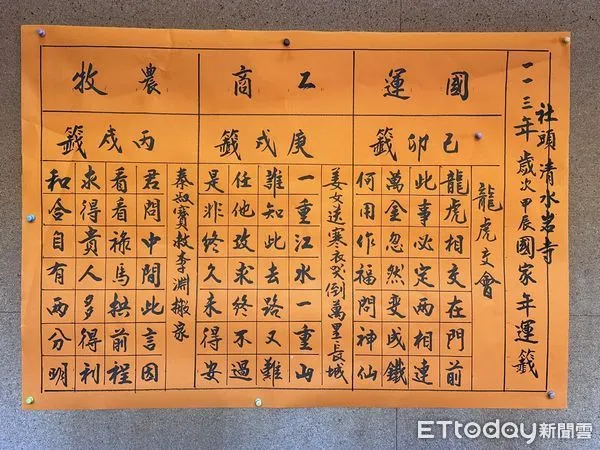 社頭清水岩寺
一一三年歲次甲辰國家年運籤
國運
己卯籤
龍虎交會
龍虎相交在門前
此事必定兩相連
萬金忽然變成鐵
何用作福問神仙
工商
庚戌籤
姜女送寒衣哭倒萬里長城
一重江水一重山
誰知此去路又難
任他改求終不過
是非終久未得安
農牧
丙戌籤
秦叔寶救李淵搬家
君問中間此言因
看看祿馬拱前程
求得貴人多得利
和合自有兩分明
ETtoday新聞雲